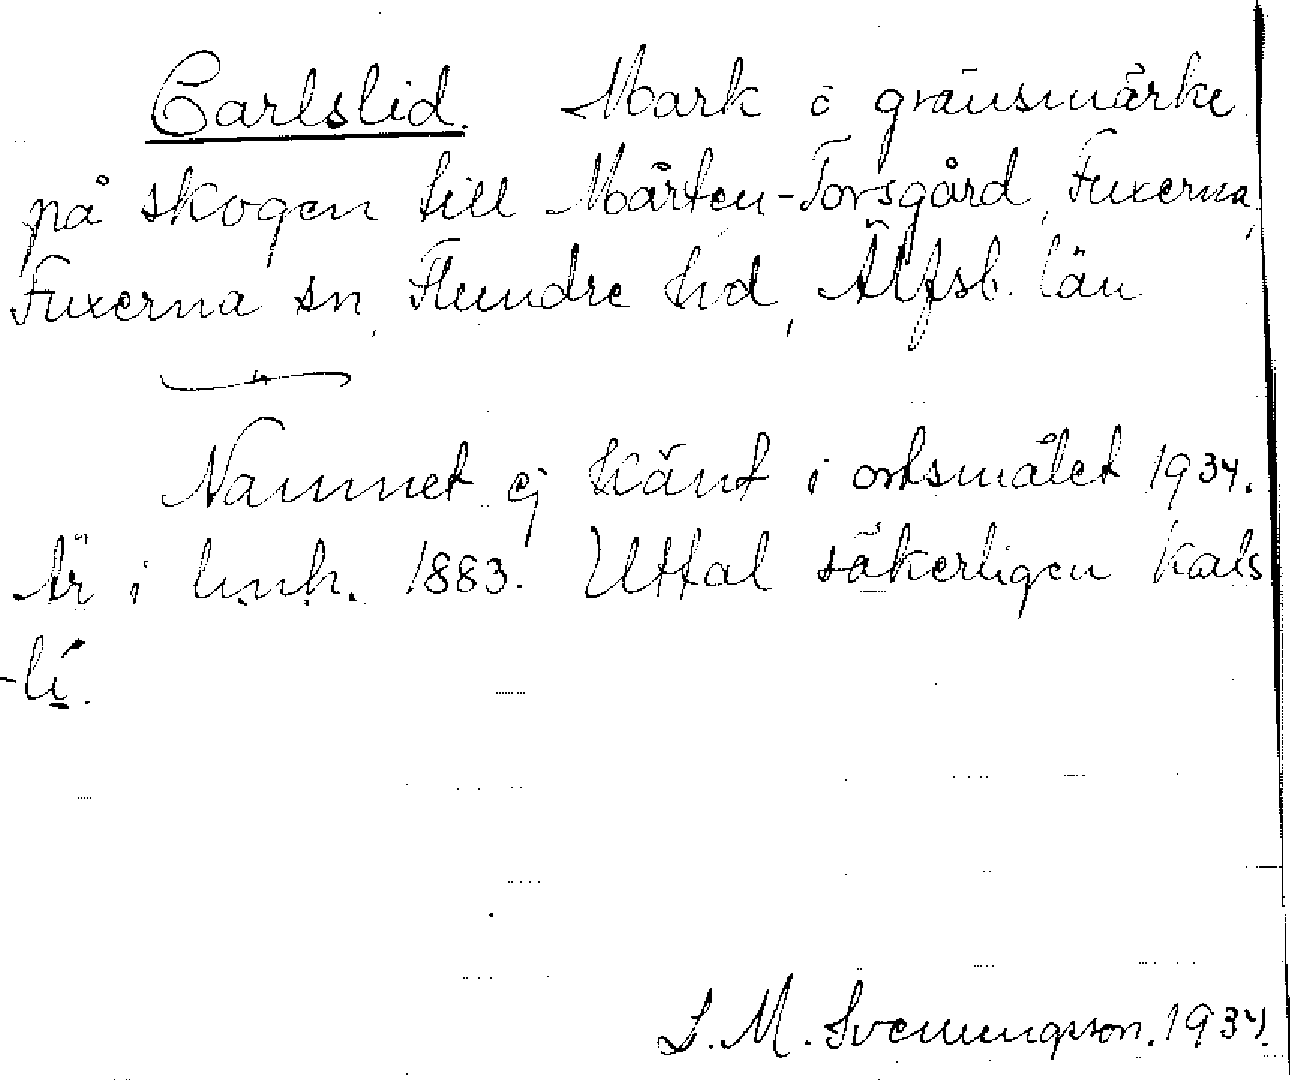 Carlslid. Mark o gränsmärke
på skogen till Mårten-Torsgård, Fuxerna,
Fuxerna sn, Flundre hd, Älfsb. län
Namnet ej känt i ortsmålet 1934.
Är i 1883. Uttal säkerligen kals
-lí.
S. M. Svenungsson. 1934.